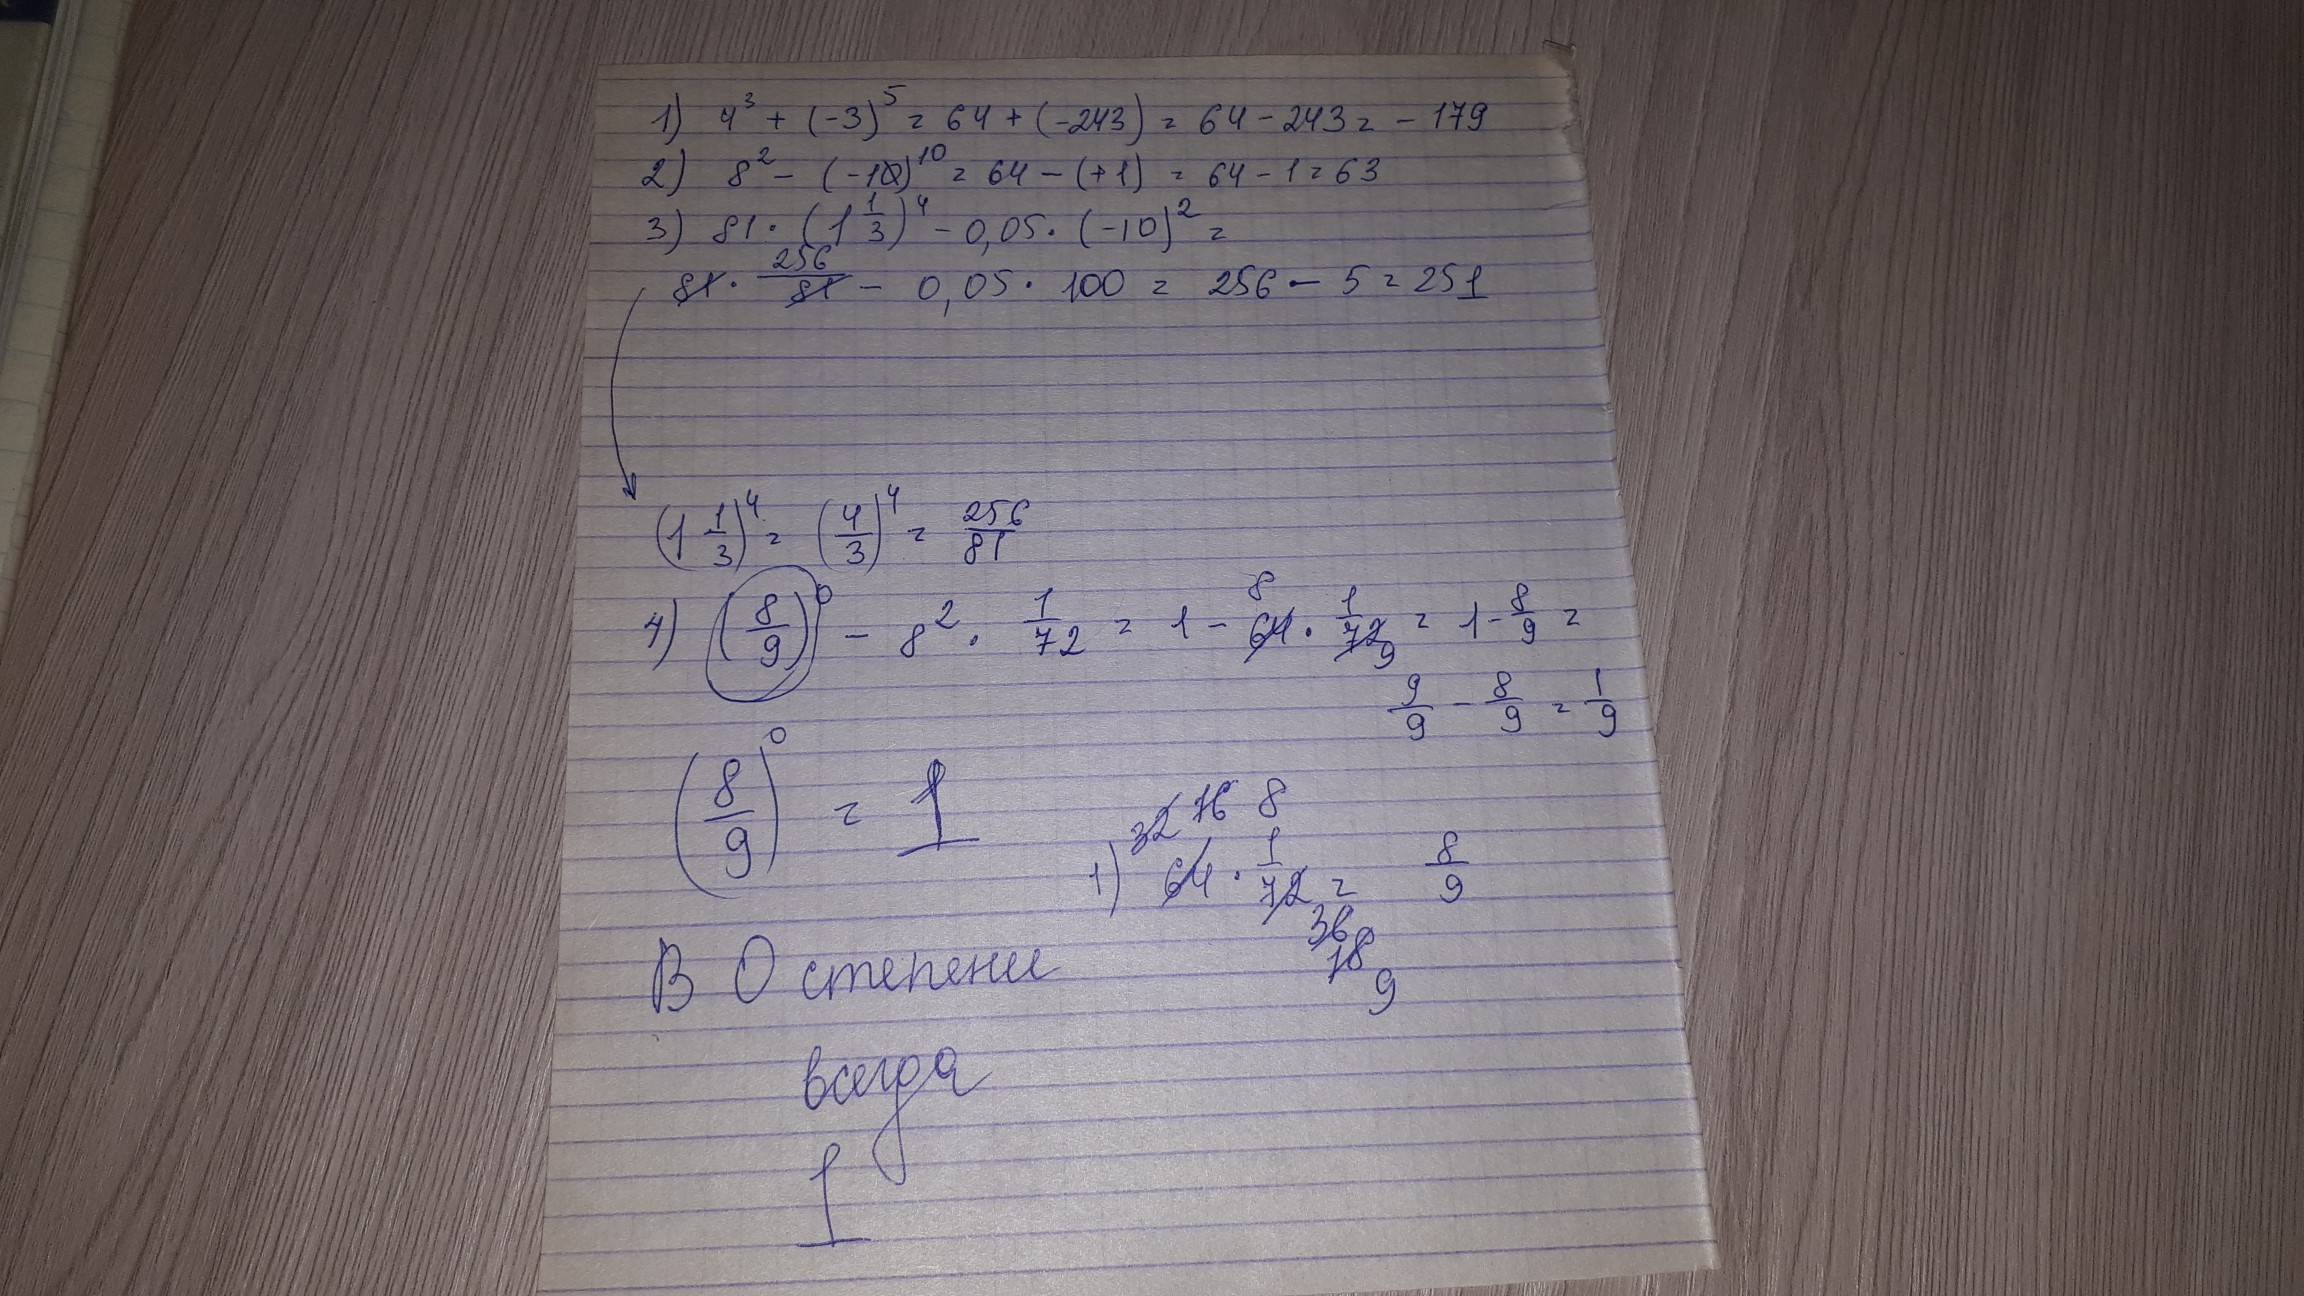 1) 4³ + (-3)⁵ = 64 + (-243) = 64 - 243 = - 179
2) 8² - (-1)¹⁰ = 64 - (+1) = 64 - 1 = 63
3) 81 · (1 1/3)⁴ - 0,05 · (-10)² =
81 · 256/81 - 0,05 · 100 = 256 - 5 = 251
(1 1/3)⁴ = (4/3)⁴ = 256/81
8
4) (8/9)⁰ - 8² · 1/72 = 1 - 64 · 1/72 = 1 - 8/9 =
9
9/9 - 8/9 = 1/9
(8/9)⁰ = 1
32 16 8
1) 64 · 1/72 = 8/9
36
18
9
В 0 степени
всегда
1